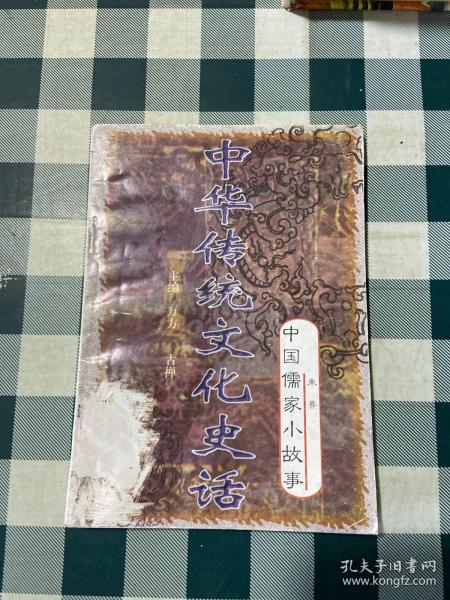 中华传统文化史话
主编 万方 古禅
中国儒家小故事
朱熹
孔夫子旧书网
www.kongfz.com